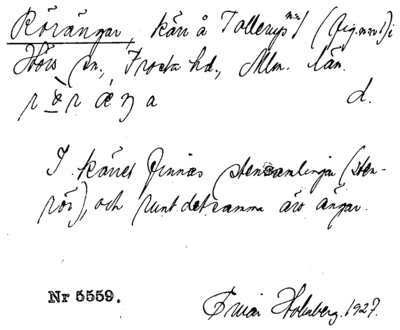 Rörängar, kärr å Tollerups mm/ (fig. nr 1) i
Hörs sn., Frosta hd., Mlm. län.
rö̀ræŋa d.
I kärret finnas stensamlingar (sten-
rör), och runt detsamma äro ängar.
Nr 5559. Holmberg. 1927.